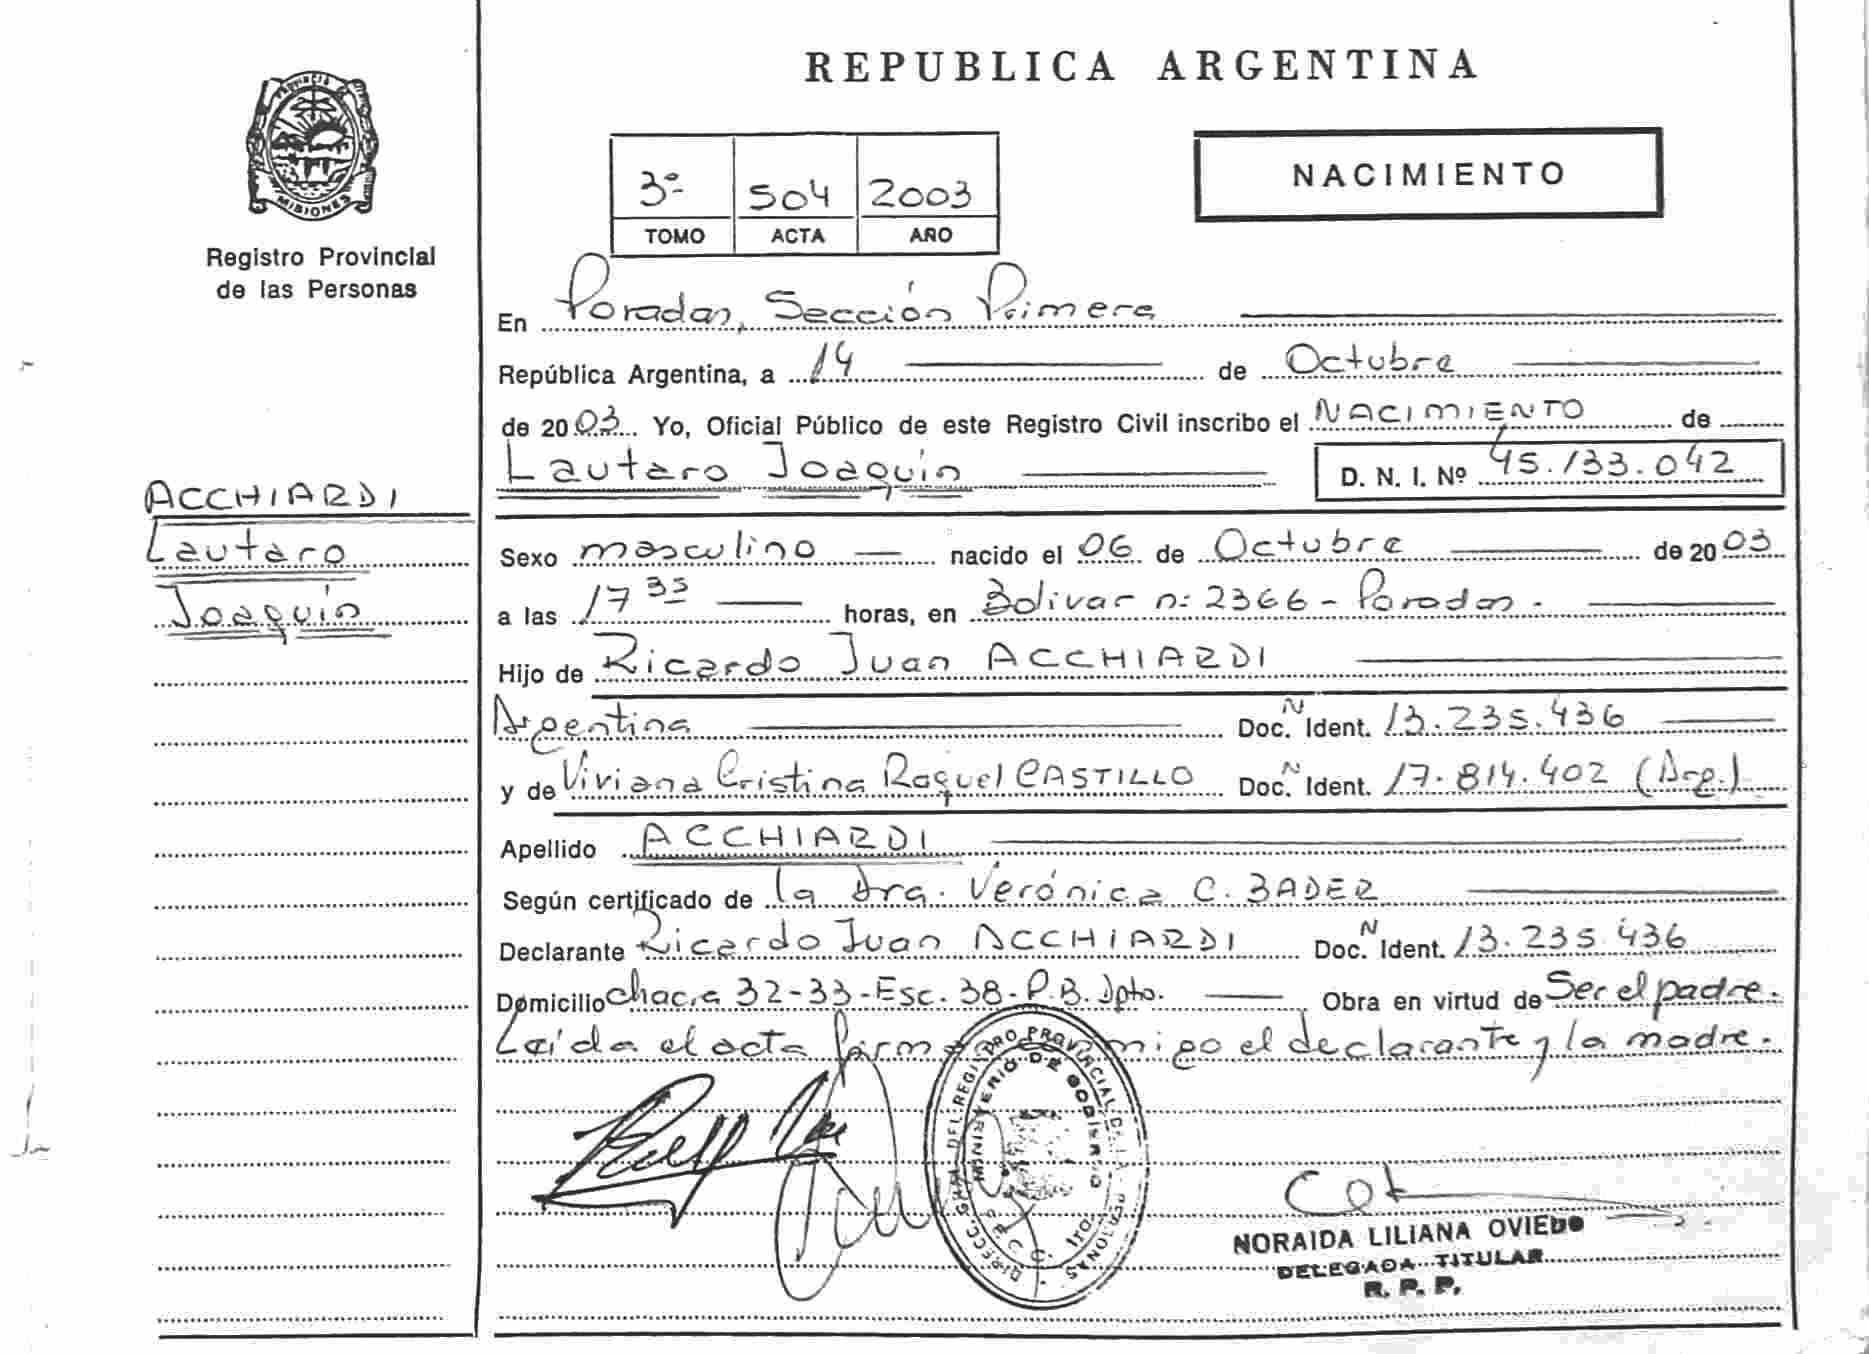 REPUBLICA ARGENTINA
PROVINCIA DE MISIONES
Registro Provincial
de las Personas
3º 504 2003
TOMO ACTA AÑO
NACIMIENTO
En Posadas, Sección Primera
República Argentina, a 14 de Octubre
de 2003 Yo, Oficial Público de este Registro Civil inscribo el NACIMIENTO de
Lautaro Joaquín D. N. I. Nº 45.133.042
ACCHIARDI
Lautaro
Joaquín
Sexo masculino nacido el 06 de Octubre de 2003
a las 17 35 horas, en Bolivar nº 2366 - Posadas.
Hijo de Ricardo Juan ACCHIARDI
Argentina Doc. N Ident. 13.235.436
y de Viviana Cristina Raquel CASTILLO Doc. N Ident. 17.814.402 (Arg.)
Apellido ACCHIARDI
Según certificado de la Dra. Verónica C. BADER
Declarante Ricardo Juan ACCHIARDI Doc. N Ident. 13.235.436
Domicilio Chacra 32-33-Esc. 38-P.B. Dpto. Obra en virtud de Ser el padre.
Leída el acta firm migo el declarante y la madre.
DIRECC. GRAL. DEL REGISTRO PROVINCIAL DE LAS PERSONAS
MINISTERIO DE GOBIERNO
NORAIDA LILIANA OVIEDO
DELEGADA TITULAR
R. P. P.